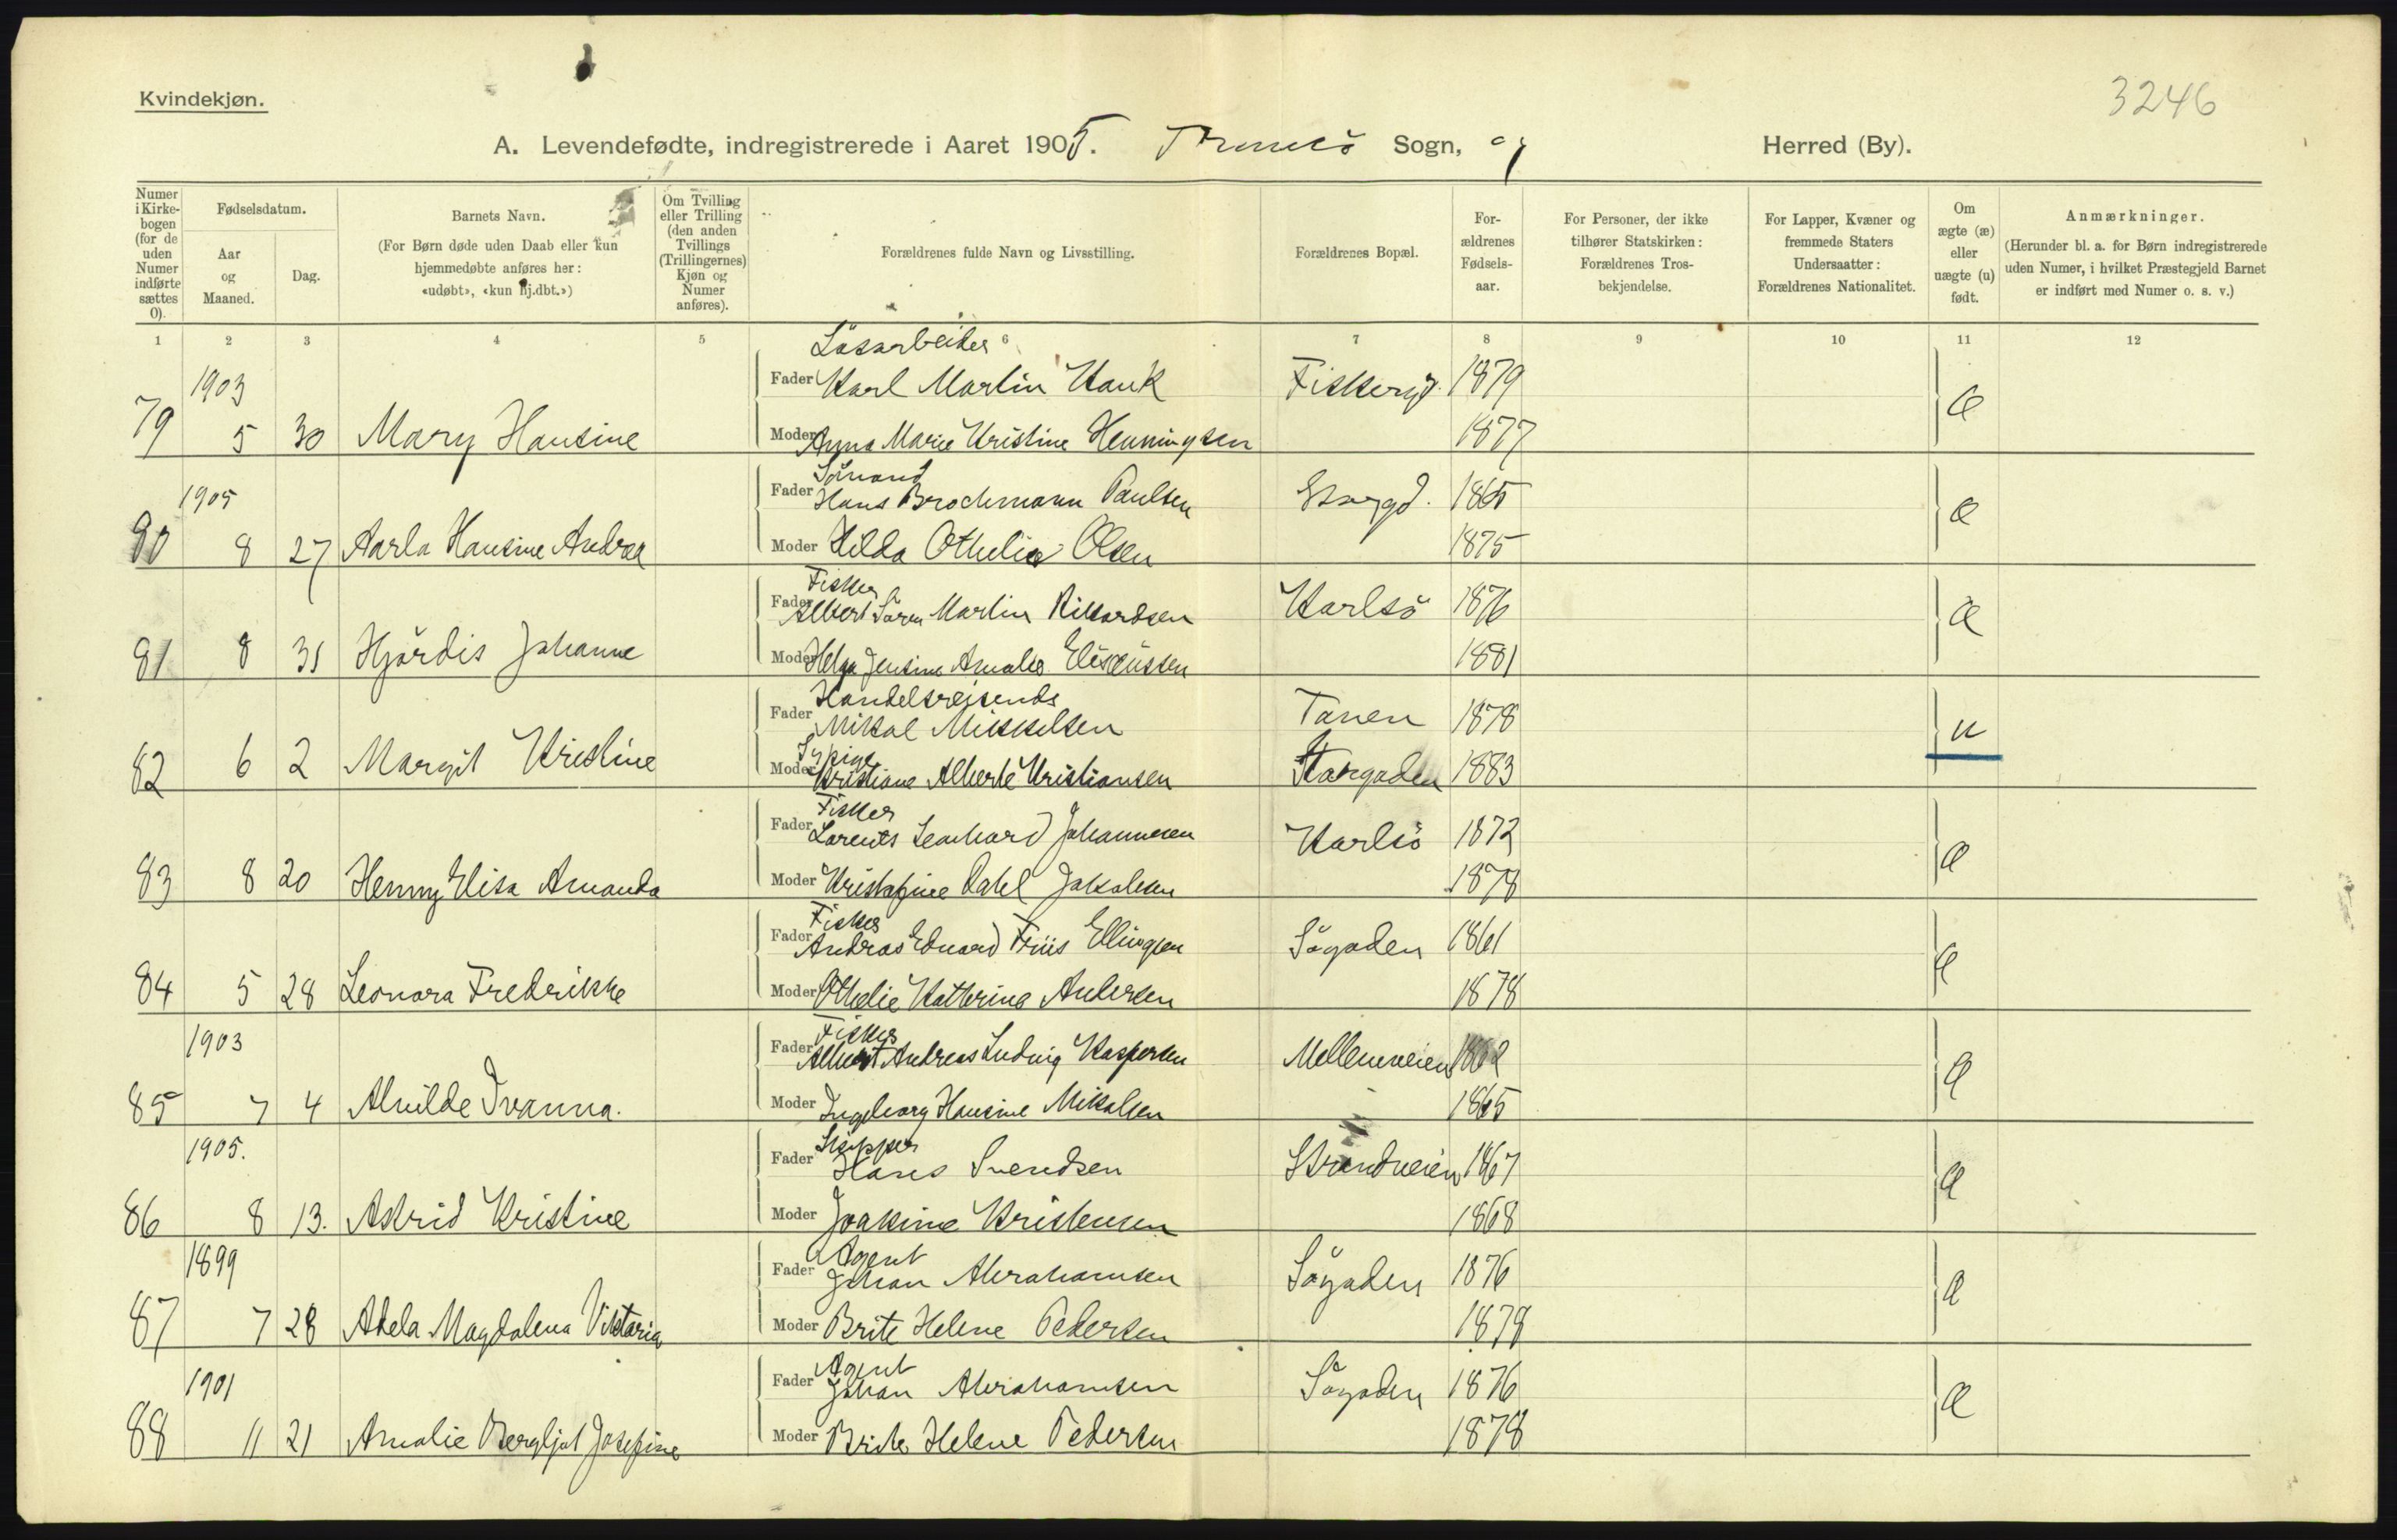 Kvindekjøn.
3246
A. Levendefødte, indregistrerede i Aaret 1905. Tromsö Sogn, og Herred (By).
Numer i Kirkebogen (for de uden Numer indførte sættes 0).
Fødselsdatum.
Aar og Maaned.
Dag.
Barnets Navn.
(For Børn døde uden Daab eller kun hjemmedøbte anføres her: «udøbt», «kun hj.dbt.»)
Om Tvilling eller Trilling (den anden Tvillings (Trillingernes) Kjøn og Numer anføres).
Forældrenes fulde Navn og Livsstilling.
Forældrenes Bopæl.
Forældrenes Fødselsaar.
For Personer, der ikke tilhører Statskirken: Forældrenes Trosbekjendelse.
For Lapper, Kvæner og fremmede Staters Undersaatter: Forældrenes Nationalitet.
Om ægte (æ) eller uægte (u) født.
Anmærkninger.
(Herunder bl. a. for Børn indregistrerede uden Numer, i hvilket Præstegjeld Barnet er indført med Numer o. s. v.)
1 2 3 4 5 6 7 8 9 10 11 12
Lösarbeider
1903 Fader Karl Martin Hauk Fiskergd. 1879 æ
79 5 30 Mary Hansine Moder Anna Marie Kristine Henningsen 1877
Sömand
1905 Fader Hans Brochmann Paulsen Storgd. 1865 æ
80 8 27 Aarla Hansine Andrea Moder Hilda Othelia Olsen 1875
Fisker
Fader Albert Sören Martin Rikardsen Karlsö 1876 æ
81 8 31 Hjördis Johanne Moder Helga Jensine Amalie Elisæussen 1881
Handelsreisende
Fader Mikal Mikkelsen Tanen 1878 u
Sypige
82 6 2 Margit Kristine Moder Kristiane Alberte Kristiansen Storgaden 1883
Fisker
Fader Lorents Leonhard Johannesen Karlsö 1872 æ
83 8 20 Henny Elisa Amanda Moder Kristofine Dahl Jakobsen 1878
Fisker
Fader Andreas Edvard Friis Ellingsen Sögaden 1861 æ
84 5 28 Leonora Fredrikke Moder Othelie Katherina Andersen 1878
Fisker
1903 Fader Albert Andreas Ludvig Kaspersen Mellemveien 1862 æ
85 7 4 Alvilde Ivanna. Moder Ingeborg Hansine Mikalsen 1865
Skipper
1905. Fader Hans Svendsen Strandveien 1867 æ
86 8 13. Astrid Kristine Moder Joakime Kristensen 1868
Agent
1899 Fader Johan Abrahamsen Sögaden 1876 æ
87 7 28 Adela Magdalena Viktoria Moder Brite Helene Pedersen 1878
Agent
1901 Fader Johan Abrahamsen Sögaden 1876 æ
88 11 21 Amalie Bergljot Josefine Moder Brite Helene Pedersen 1878